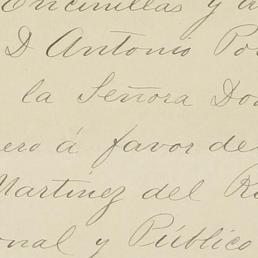 Encinillas y
D Antonio Por
la Señora Do
ero á favor de
Martinez del R
onal y Público